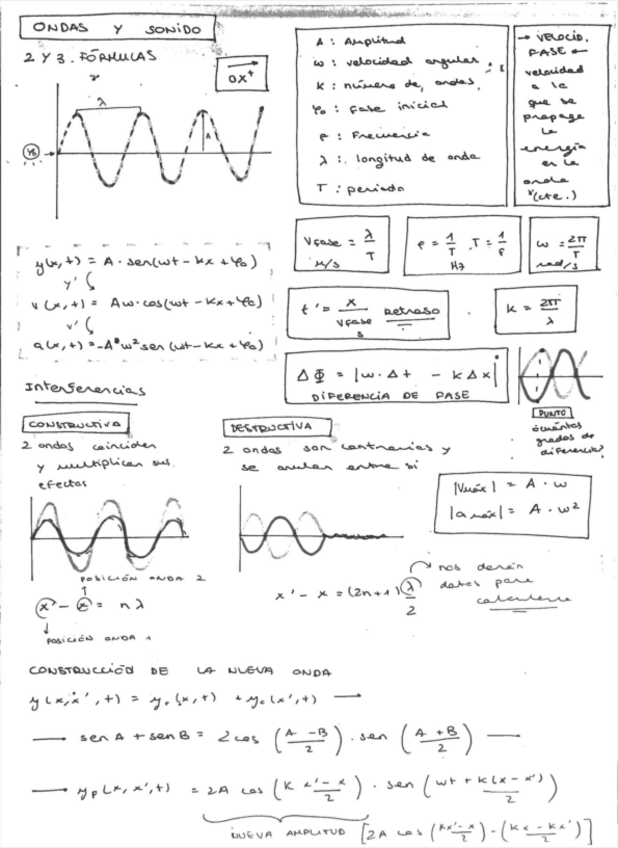 ONDAS Y SONIDO
2 Y 3. FÓRMULAS
OX⁺
λ
A
φ₀
A : Amplitud
ω : velocidad angular
K : número de ondas
φ₀ : fase inicial
f : Frecuencia
λ : longitud de onda
T : periodo
→ VELOCID. FASE ←
velocidad
a la
que se
propaga
la
energía
en la
onda
(cte.)
y(x,t) = A · sen(ωt - kx + φ₀)
y'
v(x,t) = Aω · cos(ωt - kx + φ₀)
v'
a(x,t) = -A ω² sen(ωt - kx + φ₀)
Vfase = λ/T
m/s
f = 1/T . T = 1/f
Hz
ω = 2π/T
rad/s
t' = x/Vfase Retraso
s
k = 2π/λ
ΔΦ = |ω · Δt - kΔx|
DIFERENCIA DE FASE
PUNTO
¿cuántos
grados de
diferencia?
Interferencias
CONSTRUCTIVA
2 ondas coinciden
y multiplican sus
efectos
DESTRUCTIVA
2 ondas son contrarias y
se anulan entre sí
|Vmáx| = A · ω
|a máx| = A · ω²
POSICIÓN ONDA 2
x' - x = nλ
POSICIÓN ONDA 1
x' - x = (2n+1) λ/2
nos darán
datos para
calcularse
CONSTRUCCIÓN DE LA NUEVA ONDA
y(x,x',t) = y₁(x,t) + y₂(x',t) →
→ sen A + sen B = 2 cos (A - B / 2) · sen (A + B / 2) →
→ yp(x,x',t) = 2A cos (K x' - x / 2) · sen (ωt + k(x - x') / 2)
NUEVA AMPLITUD [2A cos (kx' - x / 2) - (kx - kx' / 2)]